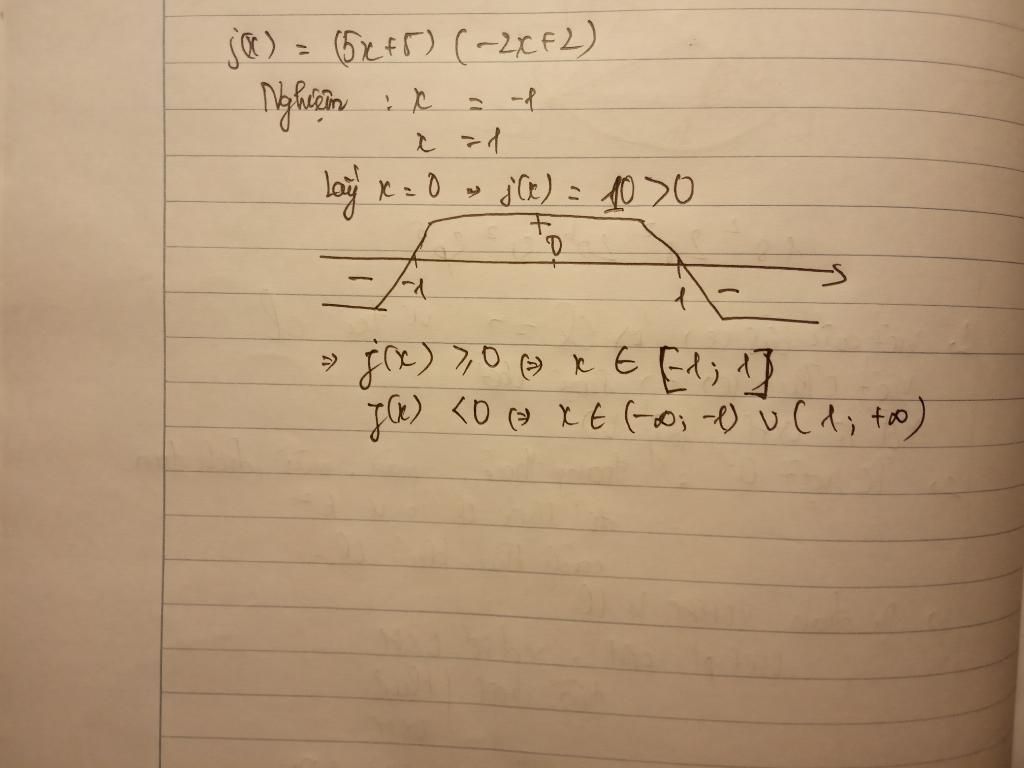 j(x) = (5x+5) (-2x+2)
Nghiệm : x = -1
x = 1
Lấy x = 0 ⇒ j(x) = 10 >0
+
0
- -1 1 -
⇒ j(x) ⩾ 0 ⇔ x ∈ [-1; 1]
j(x) <0 ⇔ x ∈ (-∞; -1) ∪ (1; +∞)